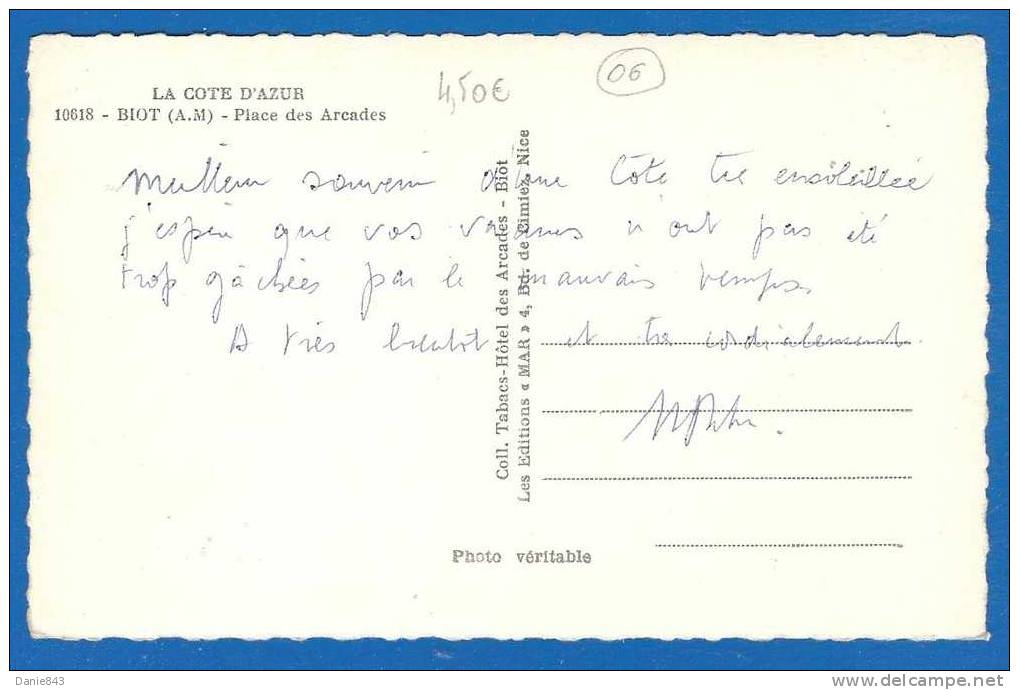 4,50€
06
LA COTE D'AZUR
10618 - BIOT (A.M) - Place des Arcades
Meilleur souvenir d'une Côte très ensoleillée
j'espère que vos vacances n'ont pas été
trop gâchées par le mauvais temps
A très bientôt et très cordialement.
Coll. Tabacs-Hôtel des Arcades - Biot
Les Editions « MAR » 4, Bd. de Cimiez, Nice
Photo véritable
Danie843
www.delcampe.net